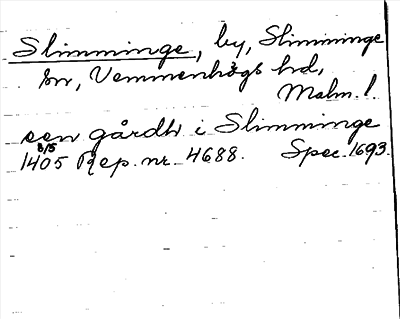 Slimminge, by, Slimminge
sn, Vemmenhögs hd,
Malm. l.
een gårdh i Slimminge
1405 8/5 Rep. nr. 4688. Spec. 1693.